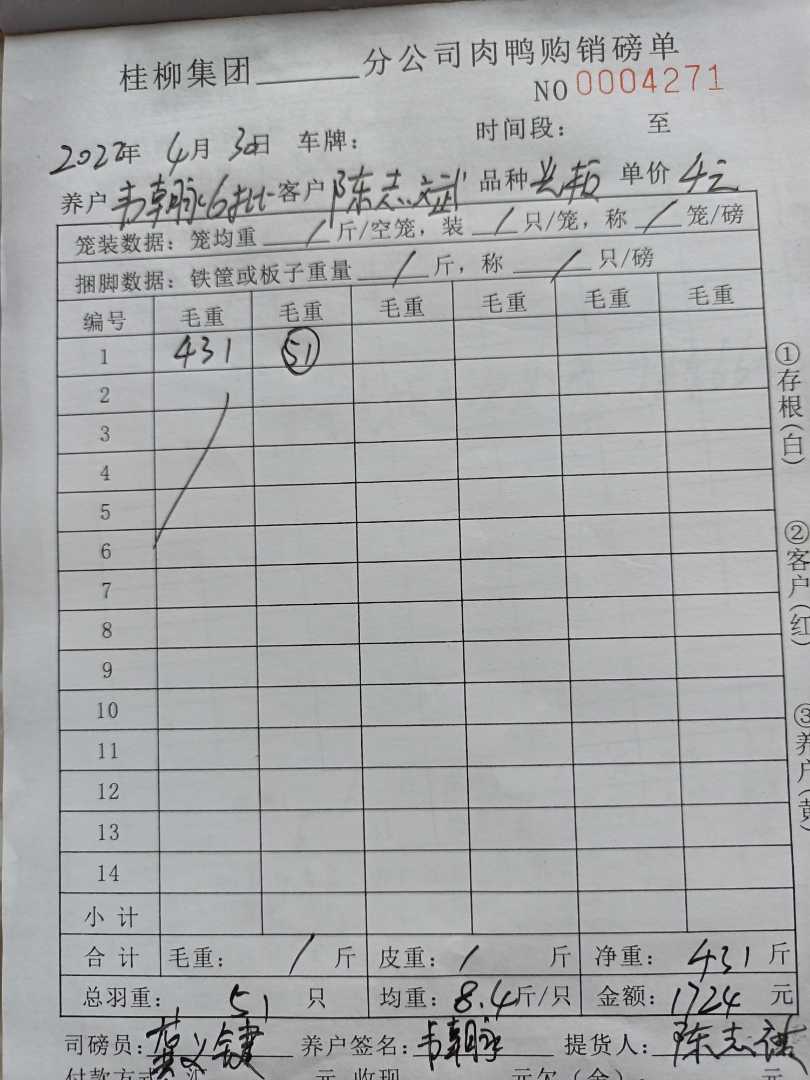 桂柳集团______分公司肉鸭购销磅单
NO 0004271
2022年 4月 30日 车牌： 时间段： 至
养户 韦朝脉6批 客户 陈志斌 品种 单价 4元
笼装数据：笼均重 / 斤/空笼，装 / 只/笼，称 / 笼/磅
捆脚数据：铁筐或板子重量 / 斤，称 / 只/磅
编号 毛重 毛重 毛重 毛重 毛重 毛重
1 431 51
2
3
4
5
6
7
8
9
10
11
12
13
14
小计
合计 毛重： / 斤 皮重： / 斤 净重： 431 斤
总羽重： 51 只 均重：8.4斤/只 金额：1724 元
司磅员： 养户签名：韦朝脉 提货人：陈志
付款方式 汇 元 收现 元欠（余）： 元
①存根（白）
②客户（红）
③养户（黄）